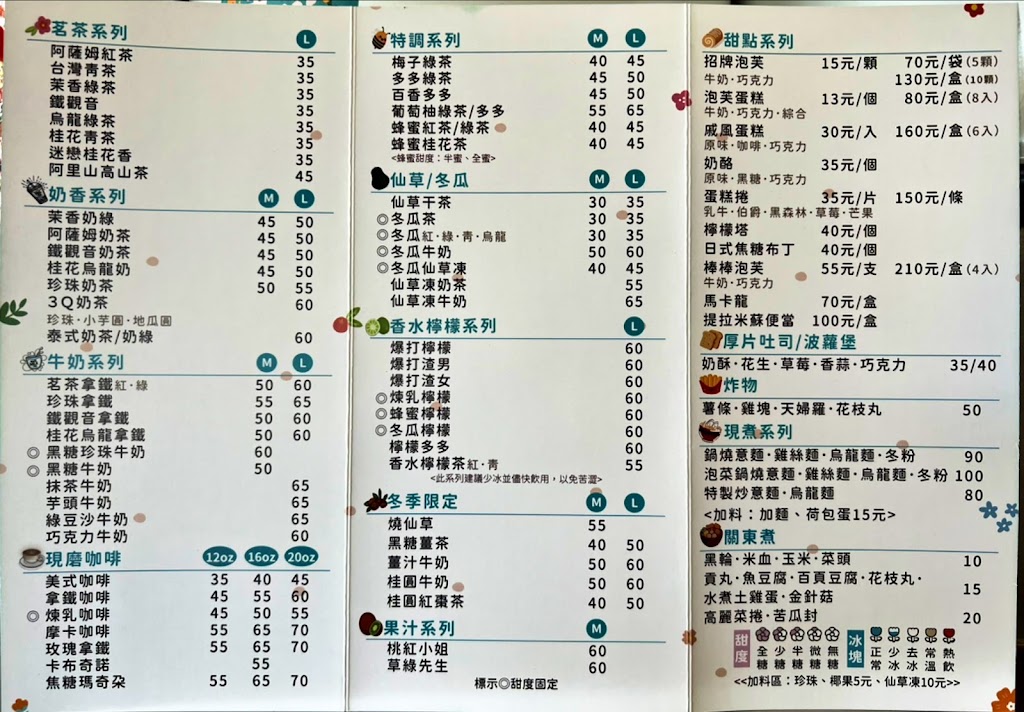 茗茶系列 L
阿薩姆紅茶 35
台灣青茶 35
茉香綠茶 35
鐵觀音 35
烏龍綠茶 35
桂花青茶 35
迷戀桂花香 35
阿里山高山茶 45
奶香系列 M L
茉香奶綠 45 50
阿薩姆奶茶 45 50
鐵觀音奶茶 45 50
桂花烏龍奶 45 50
珍珠奶茶 50 55
3Q奶茶 60
珍珠·小芋圓·地瓜圓
泰式奶茶/奶綠 60
牛奶系列 M L
茗茶拿鐵紅·綠 50 60
珍珠拿鐵 55 65
鐵觀音拿鐵 50 60
桂花烏龍拿鐵 50 60
◎黑糖珍珠牛奶 60
◎黑糖牛奶 50
抹茶牛奶 65
芋頭牛奶 65
綠豆沙牛奶 65
巧克力牛奶 60
現磨咖啡 12oz 16oz 20oz
美式咖啡 35 40 45
拿鐵咖啡 45 55 60
◎煉乳咖啡 45 50 55
摩卡咖啡 55 65 70
玫瑰拿鐵 55 65 70
卡布奇諾 55
焦糖瑪奇朵 55 65 70
特調系列 M L
梅子綠茶 40 45
多多綠茶 45 50
百香多多 45 50
葡萄柚綠茶/多多 55 65
蜂蜜紅茶/綠茶 40 45
蜂蜜桂花茶 40 45
<蜂蜜甜度：半蜜、全蜜>
仙草/冬瓜 M L
仙草干茶 30 35
◎冬瓜茶 30 35
◎冬瓜紅·綠·青·烏龍 30 35
◎冬瓜牛奶 50 60
◎冬瓜仙草凍 40 45
仙草凍奶茶 55
仙草凍牛奶 65
香水檸檬系列 L
爆打檸檬 60
爆打渣男 60
爆打渣女 60
◎煉乳檸檬 60
◎蜂蜜檸檬 60
◎冬瓜檸檬 60
檸檬多多 60
香水檸檬茶紅·青 55
<此系列建議少冰並儘快飲用，以免苦澀>
冬季限定 M L
燒仙草 55
黑糖薑茶 40 50
薑汁牛奶 50 60
桂圓牛奶 50 60
桂圓紅棗茶 40 50
果汁系列 M
桃紅小姐 60
草綠先生 60
標示◎甜度固定
甜點系列
招牌泡芙 15元/顆 70元/袋(5顆)
牛奶·巧克力 130元/盒(10顆)
泡芙蛋糕 13元/個 80元/盒(8入)
牛奶·巧克力·綜合
戚風蛋糕 30元/入 160元/盒(6入)
原味·咖啡·巧克力
奶酪 35元/個
原味·黑糖·巧克力
蛋糕捲 35元/片 150元/條
乳牛·伯爵·黑森林·草莓·芒果
檸檬塔 40元/個
日式焦糖布丁 40元/個
棒棒泡芙 55元/支 210元/盒(4入)
牛奶·巧克力
馬卡龍 70元/盒
提拉米蘇便當 100元/盒
厚片吐司/波蘿堡
奶酥·花生·草莓·香蒜·巧克力 35/40
炸物
薯條·雞塊·天婦羅·花枝丸 50
現煮系列
鍋燒意麵·雞絲麵·烏龍麵·冬粉 90
泡菜鍋燒意麵·雞絲麵·烏龍麵·冬粉 100
特製炒意麵·烏龍麵 80
<加料：加麵、荷包蛋15元>
關東煮
黑輪·米血·玉米·菜頭 10
貢丸·魚豆腐·百頁豆腐·花枝丸·
水煮土雞蛋·金針菇 15
高麗菜捲·苦瓜封 20
甜度 全糖 少糖 半糖 微糖 無糖
冰塊 正常 少冰 去冰 常溫 熱飲
<<加料區：珍珠、椰果5元、仙草凍10元>>